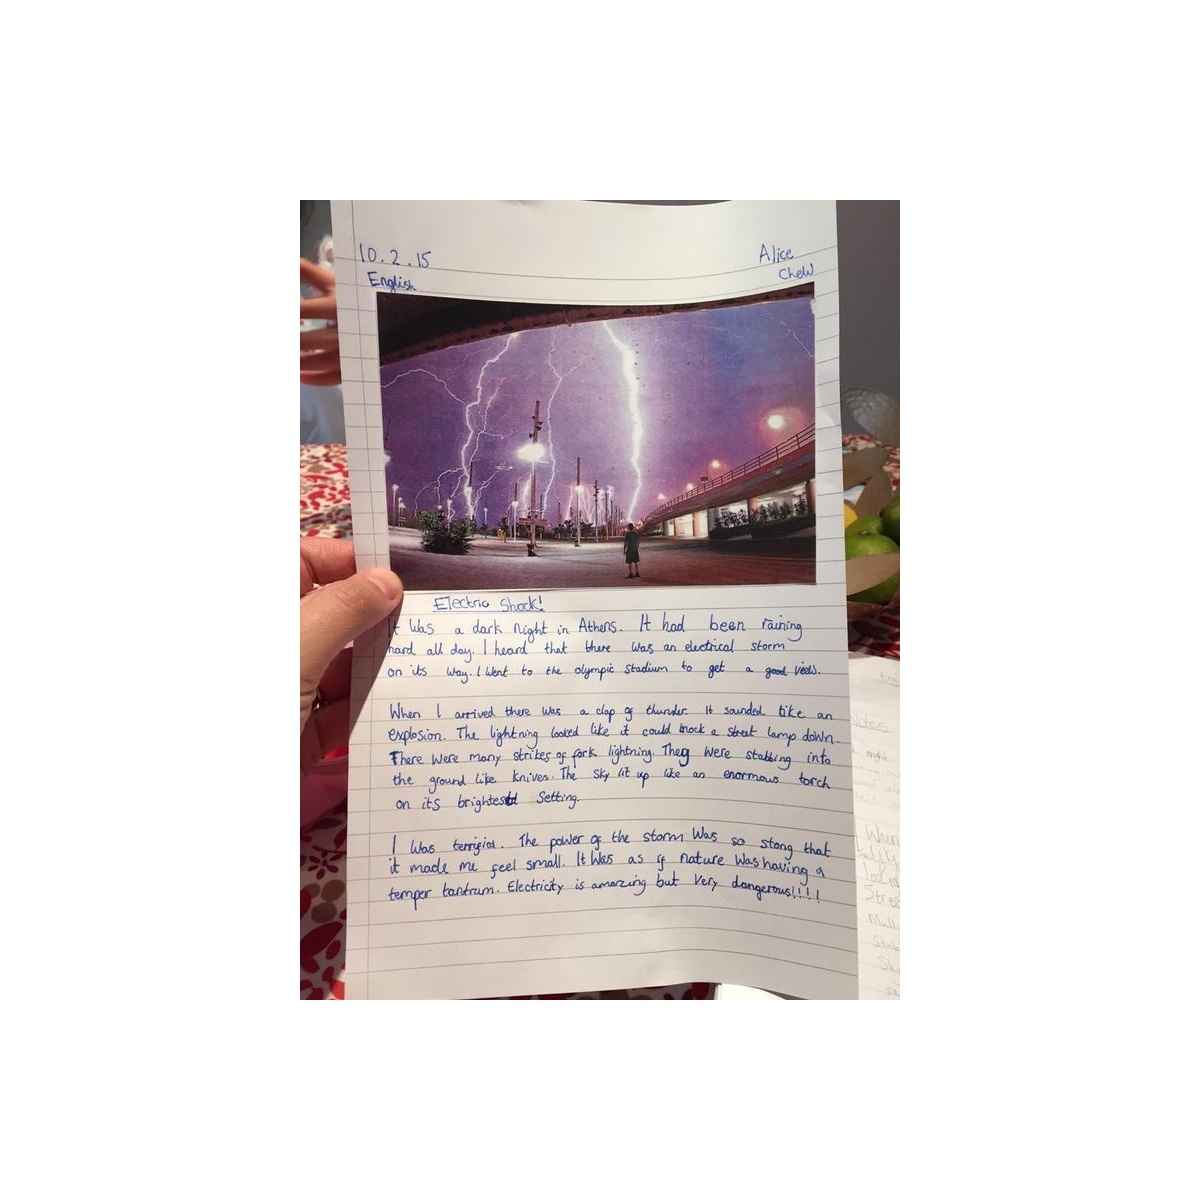 10.2.15
Alice
Chew
English
Electric Shock!
It was a dark night in Athens. It had been raining
hard all day. I heard that there was an electrical storm
on its way. I went to the olympic stadium to get a good view.
When I arrived there was a clap of thunder. It sounded like an
explosion. The lightning looked like it could knock a street lamp down.
There were many strikes of fork lightning. They were stabbing into
the ground like knives. The sky lit up like an enormous torch
on its brightest setting.
I was terrified. The power of the storm was so stong that
it made me feel small. It was as if nature was having a
temper tantrum. Electricity is amazing but very dangerous!!!!
Notes
night
When
looked
Stree
Sky